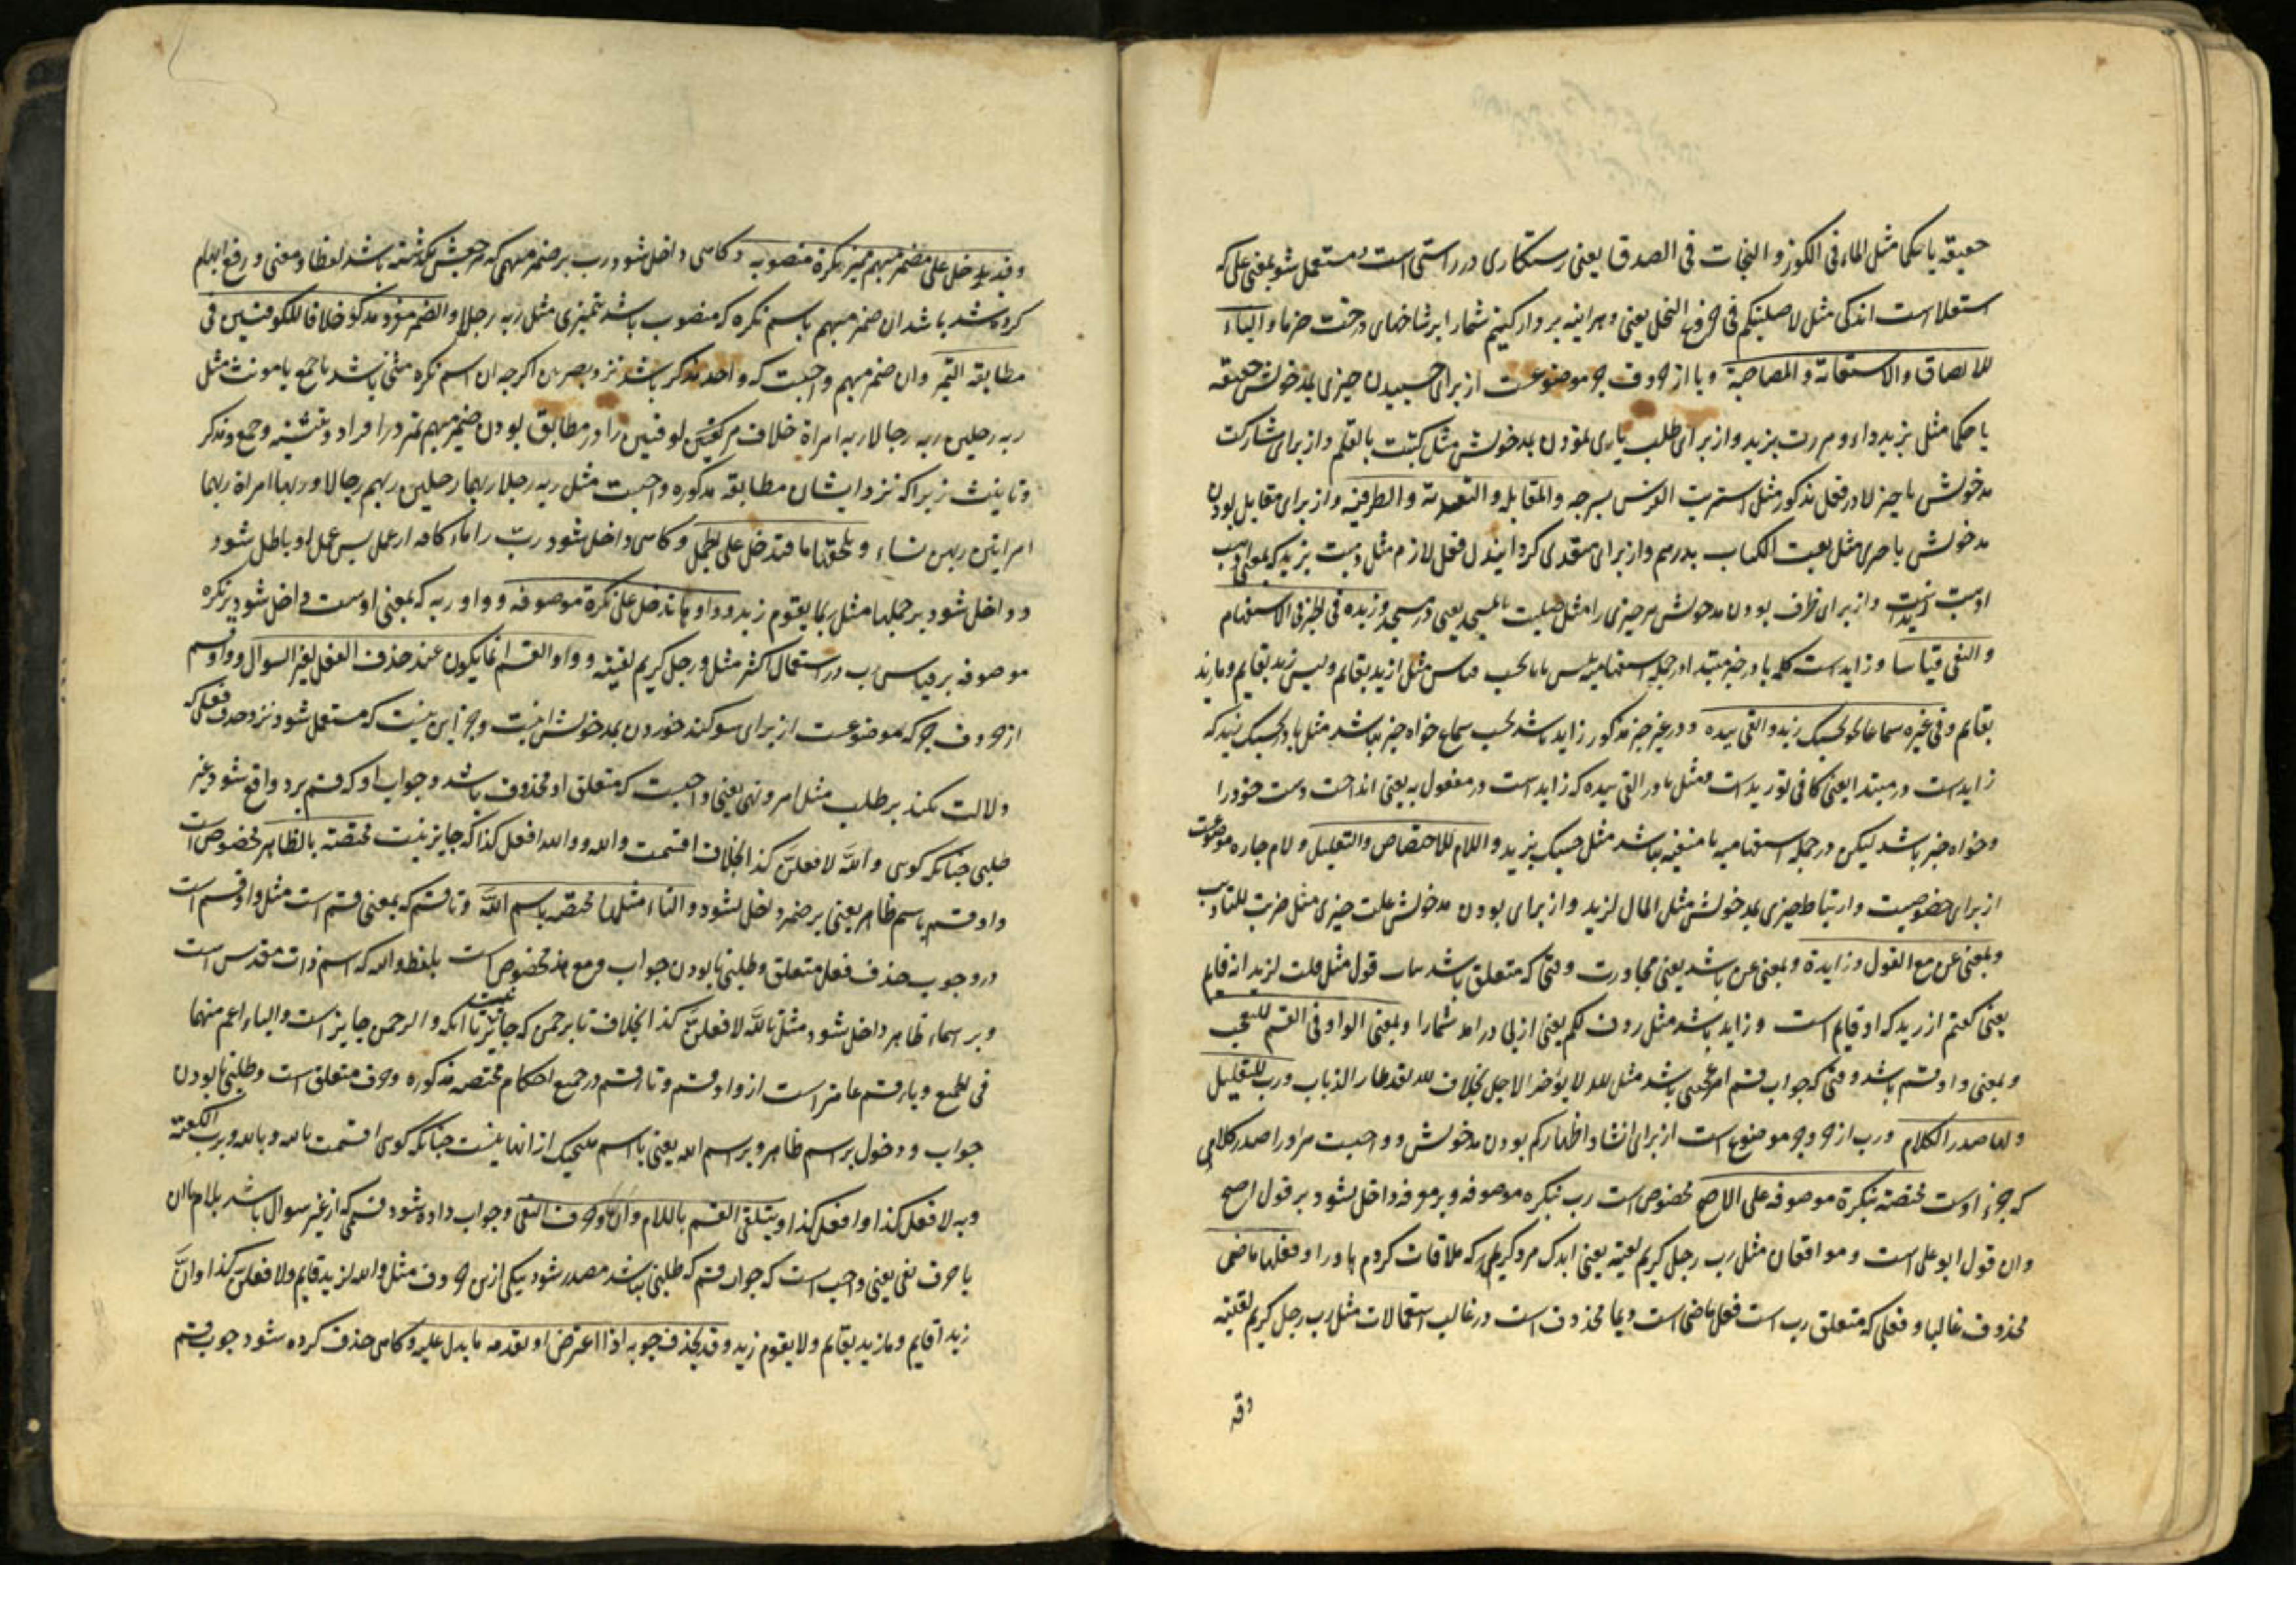 حقیقة یا حکما مثل الماء فی الکوز و النجات فی الصدق یعنی رستکاری در راستی است و مستعمل شو بمعنی علی که
استعلا است اندکی مثل لاصلبنکم فی جذوع النخل یعنی و هر اینه بر دار کنیم شما را بر شاخهای درخت خرما و الباء
للالصاق و الاستعانة و المصاحبة و با از حروف جر موضوعست از برای چسبیدن چیزی بمدخولش حقیقة
یا حکما مثل بزید داء و مررت بزید و از برای طلب یاری نمودن بمدخولش مثل کتبت بالقلم و از برای مشارکت
مدخولش با چیز در فعل مذکور مثل اشتریت الفرس بسرجه و المقابلة و التعدیة و الظرفیة و از برای مقابل بودن
مدخولش با چیزی مثل بعت الکتاب بدرهم و از برای متعدی کردانیدن فعل لازم مثل ذهبت بزید که بمعنی اذهب
اذهبت زیدا است و از برای ظرف بودن مدخولش مر چیزی را مثل جلست بالمسجد یعنی در مسجد و زیدة فی الخبر فی الاستفهام
و النفی قیاسا و زاید است کلمه با در خبر مبتدا در جمله استفهامیه بحسب قیاس مثل ازید بقایم و لیس زید بقایم و ما زید
بقایم و فی غیره سماعا نحو بحسبک زید و القی بیده و در غیر خبر مذکور زاید باشد بحسب سماع خواه خبر نباشد مثل با در بحسبک زید که
زاید است در مبتدا یعنی کافی تو زید است و مثل با در القی بیده که زاید است در مفعول به یعنی انداخت دست خود را
و خواه خبر باشد لیکن در جمله استفهامیه یا منفیه نباشد مثل حسبک بزید و اللام للاختصاص و التعلیل و لام جاره موضوعست
از برای خصوصیت و ارتباط چیزی بمدخولش مثل المال لزید و از برای بودن مدخولش علت چیزی مثل ضربت للتادیب
و بمعنی عن مع القول و زایدة و بمعنی عن باشد یعنی مجاورت وقتی که متعلق باشد قول مثل قلت لزید انه قایم
یعنی کفتم از زید که او قایم است و زاید باشد مثل ردف لکم یعنی از پی در امد شما را و بمعنی الواو فی القسم للتعجب
و بمعنی واو قسم باشد وقتی که جواب قسم امر عجبی باشد مثل لله لا یؤخر الاجل بخلاف لله لقد طار الذباب و رب للتقلیل
و لها صدر الکلام و رب از حروف جر موضوع است از برای انشاء اظهار کم بودن مدخولش و واجبست مر او را صدر کلامی
که جزء اوست مختصة بنکرة موصوفة علی الاصح مخصوص است رب بنکره موصوفه و بر معرفه داخل نشود بر قول اصح
و ان قول ابو علی است و موافقان مثل رب رجل کریم لقیته یعنی اندک مرد کریمی که ملاقات کردم با او را و فعلها ماضی
محذوف غالبا و فعلی که متعلق رب است فعل ماضی است و محذوف است در غالب استعمالات مثل رب رجل کریم لقیته
وقد
و قد یدخل علی مضمر مبهم ممیز بنکرة منصوبة و کاهی داخل شود رب بر ضمیر مبهمی که مرجعش نکذشته باشد لفظا و معنی و رفع ابهام
کرده شد باشد ان ضمیر مبهم باسم نکره که منصوب باشد بتمیزی مثل ربه رجلا و الضمیر مفرد مذکر خلافا للکوفیین فی
مطابقة التمیز و ان ضمیر مبهم واجبست که واحد مذکر باشد نزد بصریین اکرچه ان اسم نکره مثنی باشد یا جمع یا مونث مثل
ربه رجلین ربه رجالا ربه امراة خلاف مر کوفیین را در مطابق بودن ضمیر مبهم تمیز در افراد و تثنیه و جمع و تذکیر
و تانیث زیرا که نزد ایشان مطابقه مذکوره واجبست مثل ربه رجلا ربهما رجلین ربهم رجالا و ربها امراة ربهما
امراتین ربهن نساء و یلحقها ما فتدخل علی الجمل و کاهی داخل شود رب را ماء کافه از عمل پس عمل او باطل شود
و داخل شود بر جملها مثل ربما یقوم زید و واوها تدخل علی نکرة موصوفة و واو ربه که بمعنی اوست داخل شود بر نکره
موصوفه بر قیاس رب در استعمال اکثر مثل و رجل کریم لقیته و واو القسم انما یکون عند حذف الفعل لغیر السوال و واو قسم
از حروف جر که موضوعست از برای سوکند خوردن بمدخولش نیست و جز این نیست که مستعمل شود نزد حذف فعلی که
دلالت نکند بر طلب مثل امر و نهی یعنی واجبست که متعلق او محذوف باشد و جواب او که قسم برد واقع شود غیر
طلبی چنانکه کوی و الله لافعلن کذا بخلاف اقسمت والله و والله افعل کذا که جایز نیست مختصة بالظاهر مخصوص است
واو قسم باسم ظاهر یعنی بر ضمیر داخل نشود و التاء مثلها مختصة باسم الله و تا قسم که بمعنی قسم است مثل واو قسم است
در وجوب حذف فعل متعلق و طلبی نابودن جواب و مع هذا مخصوص است بلفظ والله که اسم ذات مقدس است
و بر اسماء ظاهر داخل شود مثل تالله لافعلن کذا بخلاف تا برحمن که جایز نیست با انکه و الرحمن جایز است و الباء اعم منهما
فی الجمیع و باء قسم عامتر است از واو قسم و تا قسم در جمیع احکام مختصه مذکوره و حذف متعلق است و طلبی نابودن
جواب و دخول بر اسم ظاهر و بر اسم الله یعنی با اسم هیچیک از انها نیست چنانکه کوی اقسمت بالله و بالله و برب الکعبة
و به لافعل کذا و افعل کذا و یتلقی القسم باللام و ان و حرف النفی و جواب داده شود قسمی که از غیر سوال باشد بلام یا ان
یا حرف نفی یعنی واجب است که جواب قسم که طلبی نباشد مصدر شود بیکی از این حروف مثل والله لزید قایم و لافعلن کذا و ان
زیدا قایم و ما زید بقایم و لا یقوم زید و قد یحذف جوابه اذا اعترض او تقدمه ما یدل علیه و کاهی حذف کرده شود جواب قسم